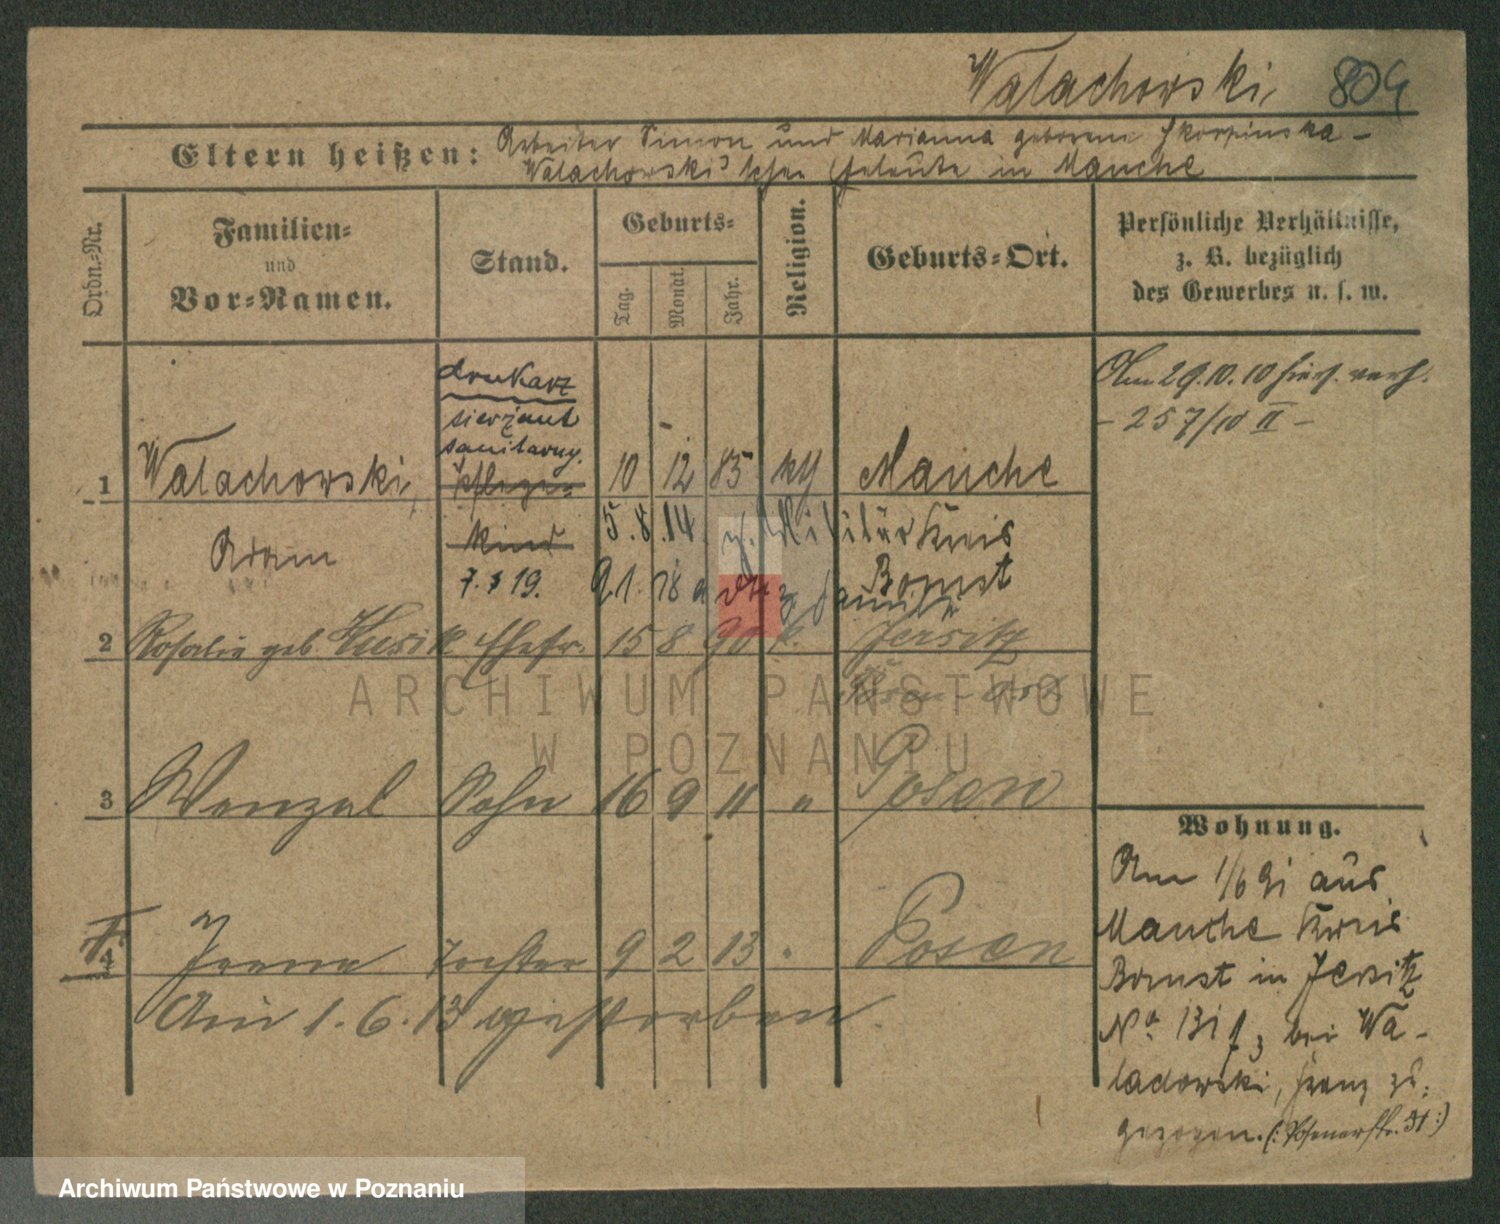 Walachowski, 804
Eltern heißen: Arbeiter Simon und Marianna geborene Skorpinska-
Walachowski'schen Eheleute in Mauche
Ordn.-Nr.
Familien-
und
Vor-Namen.
Stand.
Geburts-
Tag.
Monat.
Jahr.
Religion.
Geburts-Ort.
Persönliche Verhältnisse,
z. B. bezüglich
des Gewerbes u. s. w.
drukarz
sierżant
sanitarny.
1 Walachowski, Pflege- 10 12 85 kth Mauche
Adam Kind 5.8.14. z. Militär Kreis
7. 3 19. 9.1.18 a d. z. Familie Bomst
2 Rosalie geb. Kusik Ehefr. 15 8 90 k. Jersitz
Posen
3 Wenzel Sohn 16 9 11 " Posen
4 Irene Tochter 9 2 13 " Posen
Am 1.6.13 gestorben
Am 29.10.10 hier verh.
- 257/10 II -
Wohnung.
Am 1/6 91 aus
Mauche Kreis
Bomst in Jersitz
No 131 bei Wa-
lachowski, Franz zu-
gezogen. (: Posenerstr. 31 :)
ARCHIWUM PAŃSTWOWE
W POZNANIU
Archiwum Państwowe w Poznaniu